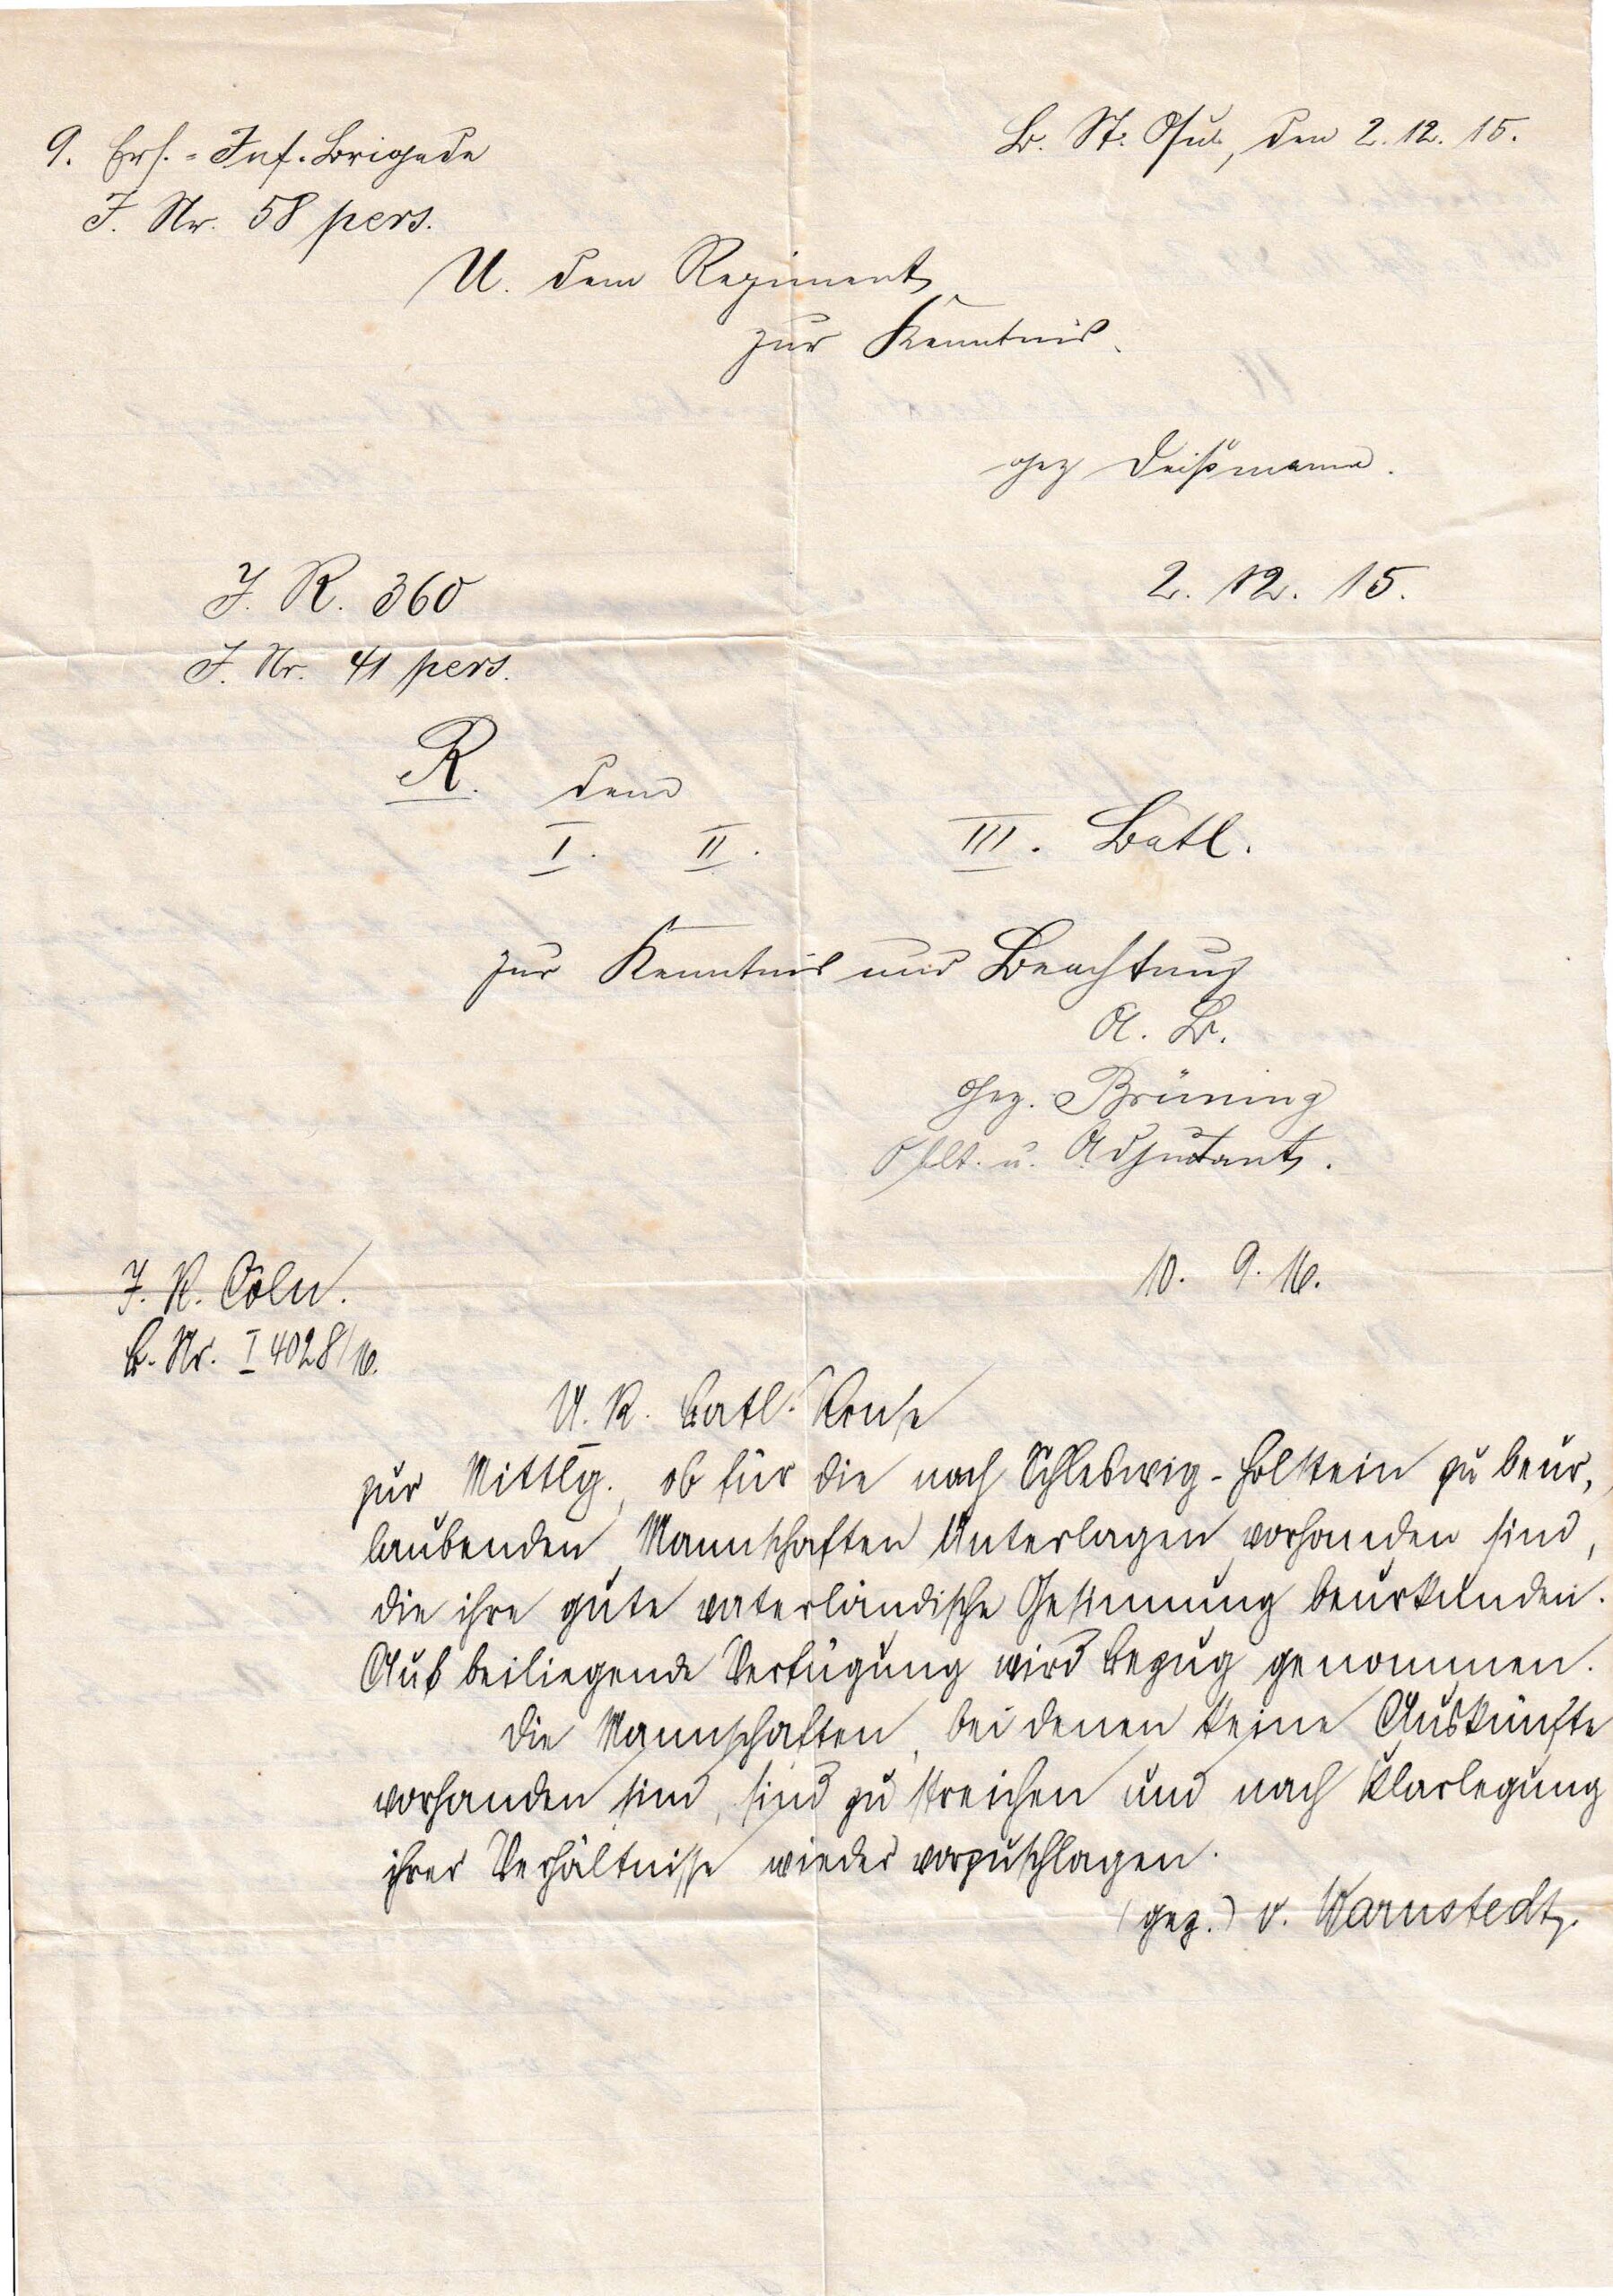 9. Ers.-Inf.-Brigade
Br. St. , den 2. 12. 15.
J. Nr. 58 pers.
U. dem Regiment
zur Kenntnis.
gez Deißmann.
J. R. 360
2. 12. 15.
J. Nr. 41 pers.
R. dem
I. II. III. Batl.
zur Kenntnis und Beachtung
A. B.
gez. Brüning
Oblt. u. Adjutant.
J. R. Cöln.
10. 9. 16.
B. Nr. I 4028/16.
U. R. Batl.
zur Mittlg., ob für die nach Schleswig-Holstein zu beur,
laubenden Mannschaften Unterlagen vorhanden sind,
die ihre gute vaterländische Gesinnung beurkunden.
Auf beiliegende Verfügung wird Bezug genommen.
Die Mannschaften, bei denen keine Auskünfte
vorhanden sind, sind zu streichen und nach Klarlegung
ihrer Verhältnisse wieder vorzuschlagen.
(gez.) v. Warnstedt.